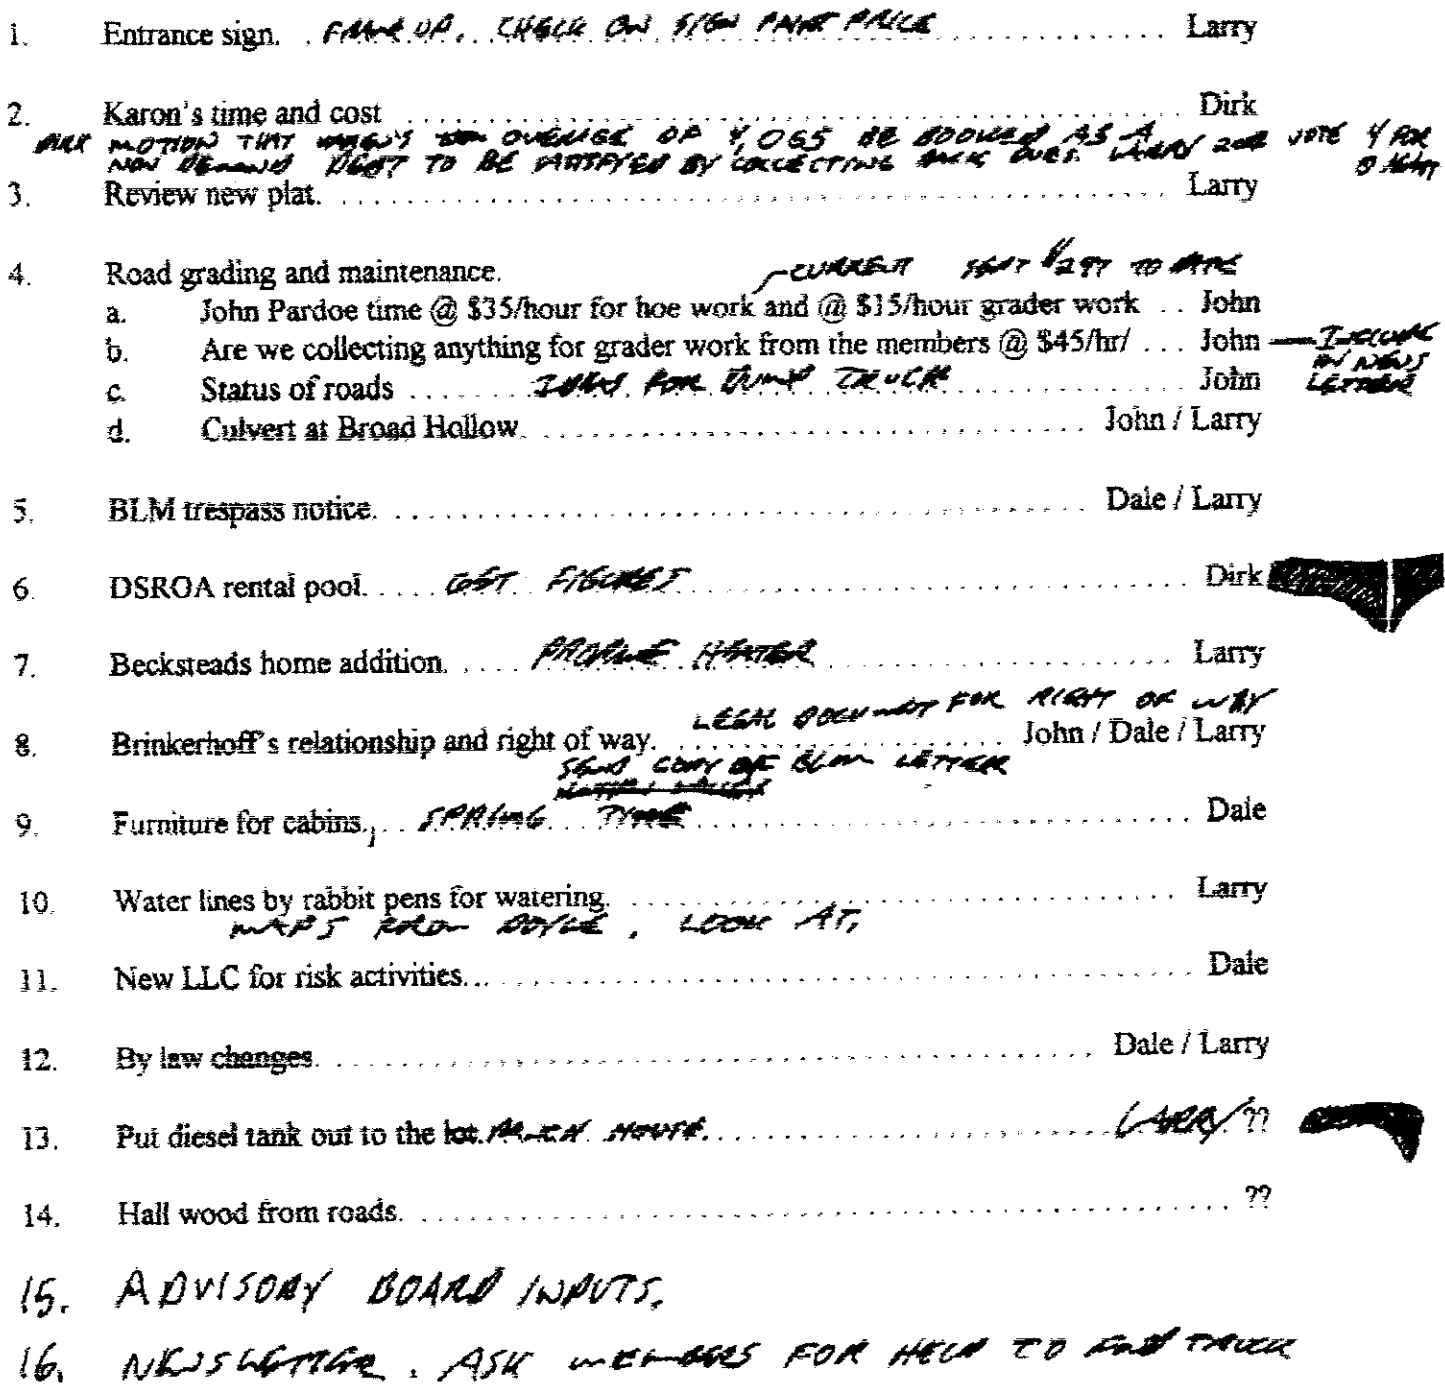 1. Entrance sign. . FRAME UP. CHECK ON SIGN PAINT PRICE . . . . . . . . . . Larry
2. Karon's time and cost . . . . . . . . . . Dirk
MOTION THAT OVERAGE OF 4,065 BE BOOKED AS A
NON DEMAND DEBT TO BE SATISFYED BY COLLECTING BACK DUES. LARRY 2nd VOTE 4 FOR
3. Review new plat. . . . . . . . . . . Larry
4. Road grading and maintenance.
CURRENT SENT TO
a. John Pardoe time @ $35/hour for hoe work and @ $15/hour grader work . . John
b. Are we collecting anything for grader work from the members @ $45/hr/ . . . John — INCLUDE
IN NEWS
LETTER
c. Status of roads . . . . . FOR DUMP TRUCK . . . . . John
d. Culvert at Broad Hollow. . . . . . . . . . . John / Larry
5. BLM trespass notice. . . . . . . . . . . Dale / Larry
6. DSROA rental pool. . . . . COST FIGURES . . . . . Dirk
7. Becksteads home addition. . . . . PROPANE HEATER . . . . . Larry
LEGAL DOCUMENT FOR RIGHT OF WAY
8. Brinkerhoff's relationship and right of way. . . . . . John / Dale / Larry
SEND COPY OF BLM LETTER
9. Furniture for cabins. . . SPRING TIME . . . . . Dale
10. Water lines by rabbit pens for watering. . . . . . Larry
MAPS FROM DOYLE, LOOK AT,
11. New LLC for risk activities. . . . . . . . . . . Dale
12. By law changes. . . . . . . . . . . Dale / Larry
13. Put diesel tank out to the lot. HOUSE. . . . . . LARRY ??
14. Hall wood from roads. . . . . . . . . . . ??
15. ADVISORY BOARD INPUTS.
16. NEWSLETTER. ASK MEMBERS FOR HELP TO FIND TRUCK